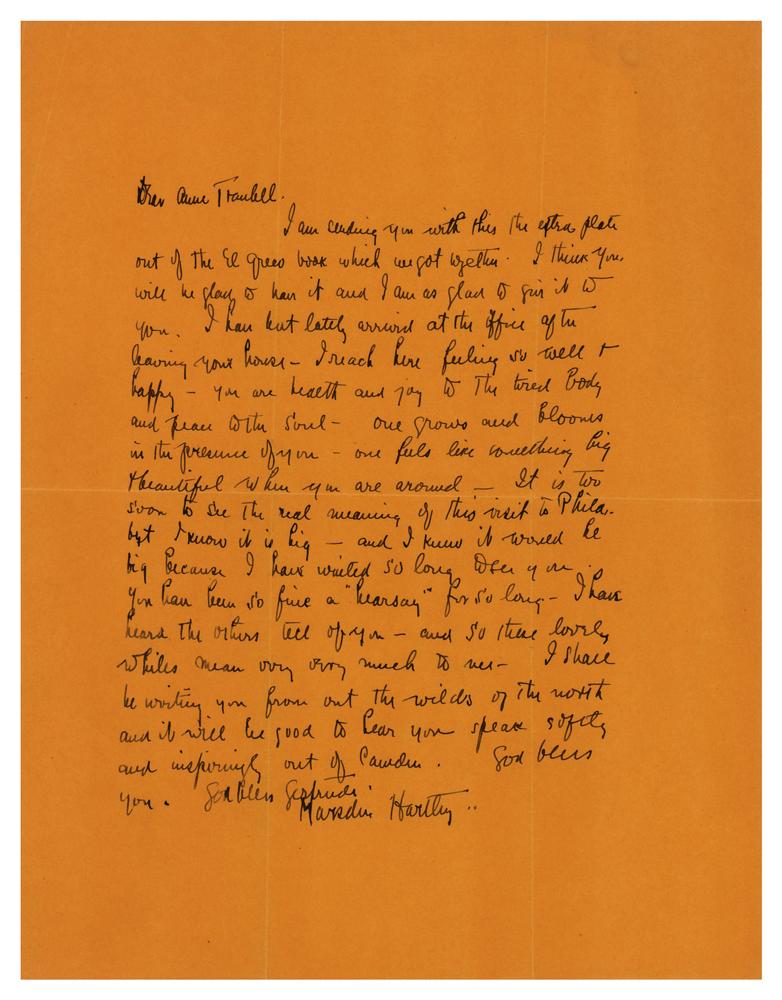 Dear Anne Traubell.
I am sending you with this the extra plate
out of the El Greco book which we got together. I think you
will be glad to have it and I am as glad to give it to
you. I have but lately arrived at the office after
leaving your house – I reach here feeling so well &
happy – you are health and joy to the tired body
and peace to the soul – one grows and blooms
in the presence of you – one feels like something big
& beautiful when you are around – It is too
soon to see the real meaning of this visit to Phila.
but I know it is big – and I knew it would be
big because I have waited so long to see you.
You have been so fine a "hearsay" for so long – I have
heard the others tell of you – and so these lovely
whiles mean very very much to me – I shall
be writing you from out the wilds of the north
and it will be good to hear you speak softly
and inspiringly out of Camden. God bless
you. God bless Gertrude.
Marsden Hartley ..